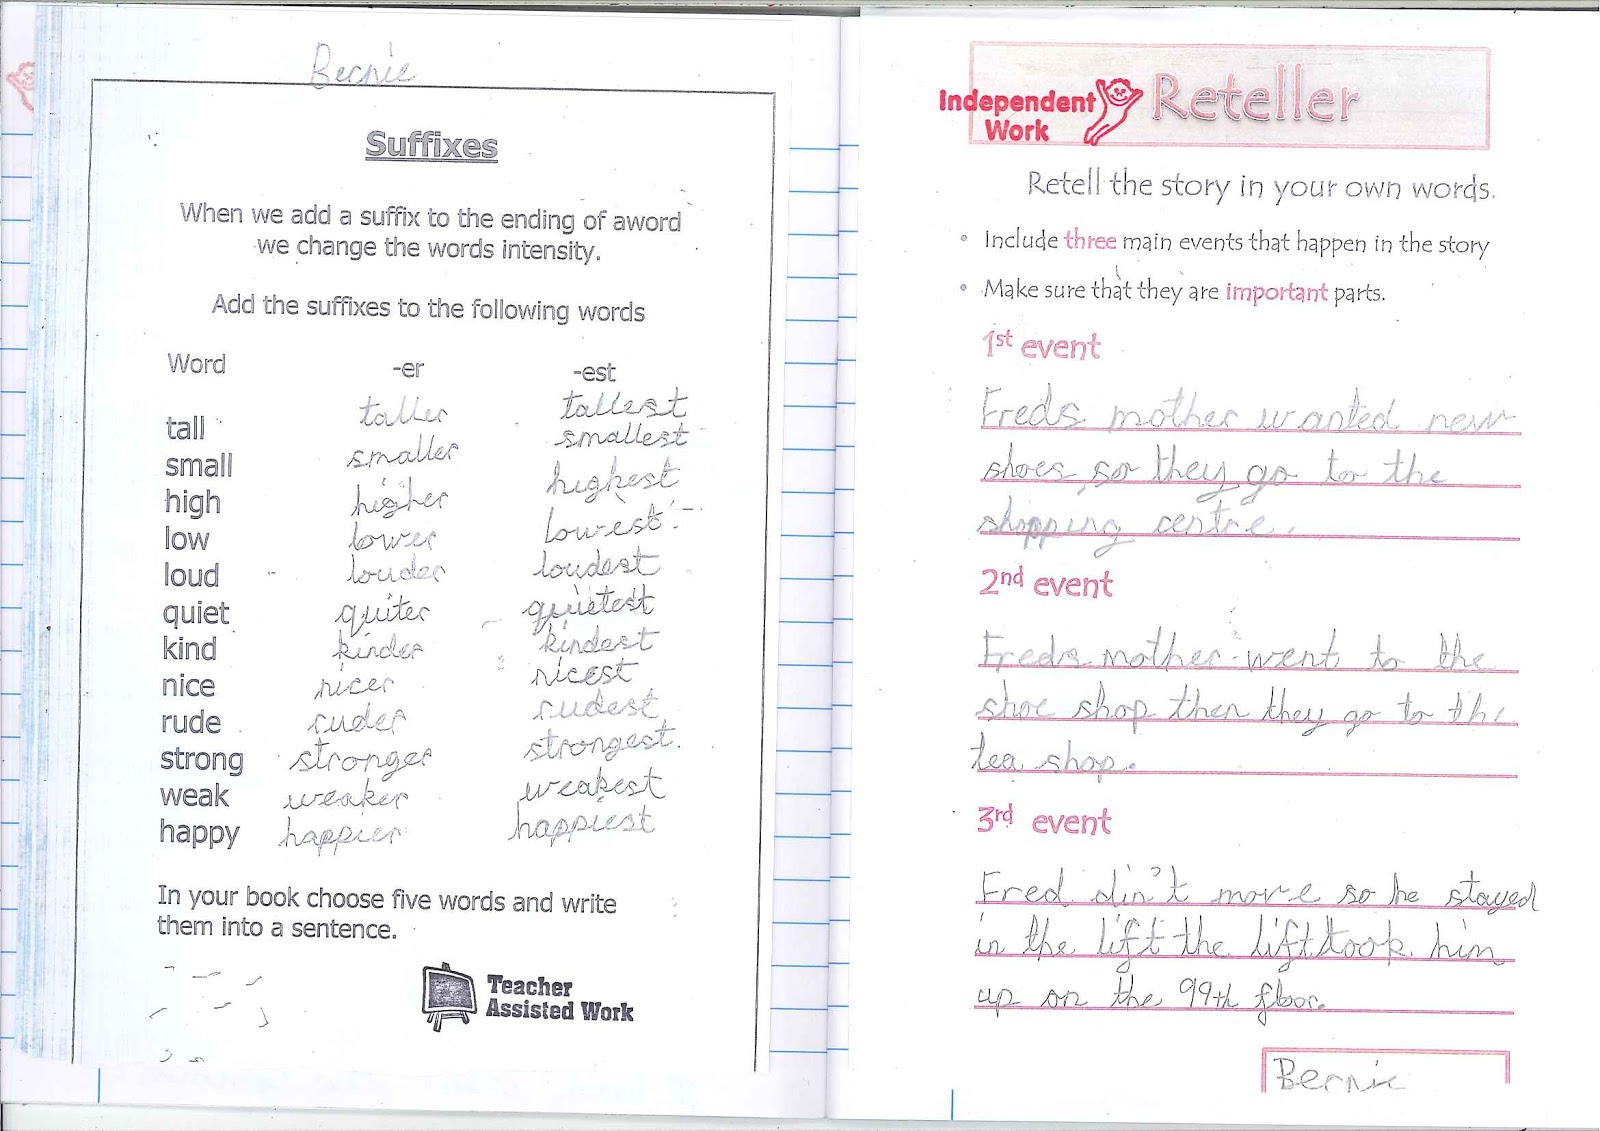 Bernie
Suffixes
When we add a suffix to the ending of aword
we change the words intensity.
Add the suffixes to the following words
Word -er -est
tall taller tallest
small smaller smallest
high higher highest
low lower lowest
loud louder loudest
quiet quiter quietest
kind kinder kindest
nice nicer nicest
rude ruder rudest
strong stronger strongest.
weak weaker weakest
happy happier happiest
In your book choose five words and write
them into a sentence.
Teacher
Assisted Work
Independent
Work
Reteller
Retell the story in your own words.
• Include three main events that happen in the story
• Make sure that they are important parts.
1st event
Freds mother wanted new
shoes so they go to the
shopping centre.
2nd event
Freds mother went to the
shoe shop then they go to the
tea shop.
3rd event
Fred din't move so he stayed
in the lift the lift took him
up on the 99th floor.
Bernie